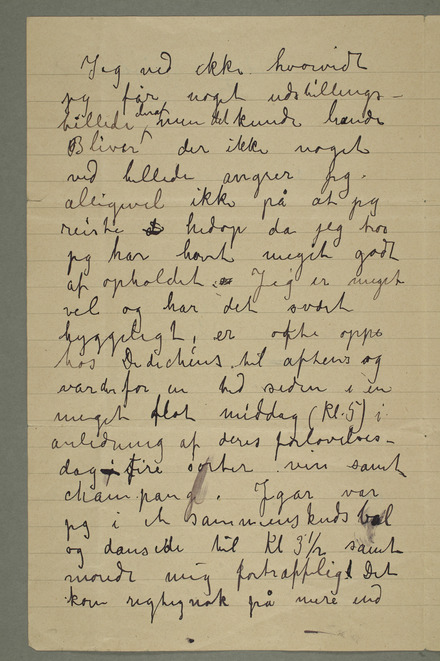 Jeg ved ikke hvorvidt
jeg får noget udstillings-
billede deraf, men det kunde hænde
Bliver der ikke noget
ved billede angrer jeg
alligevel ikke på at jeg
reiste hidop da jeg tror
jeg har havt meget godt
af opholdet. Jeg er meget
vel og har det svært
hyggeligt, er ofte oppe
hos Dedichens til aftens og
var der for en tid siden i en
meget flot middag (Kl. 5) i
anledning af deres forlovelses-
dag fire sorter vin samt
champang. Igår var
jeg i et sammenskuds bal
og dansede til Kl 3 1/2 samt
morede mig fortræffligt Det
kom rigtignok på mere end